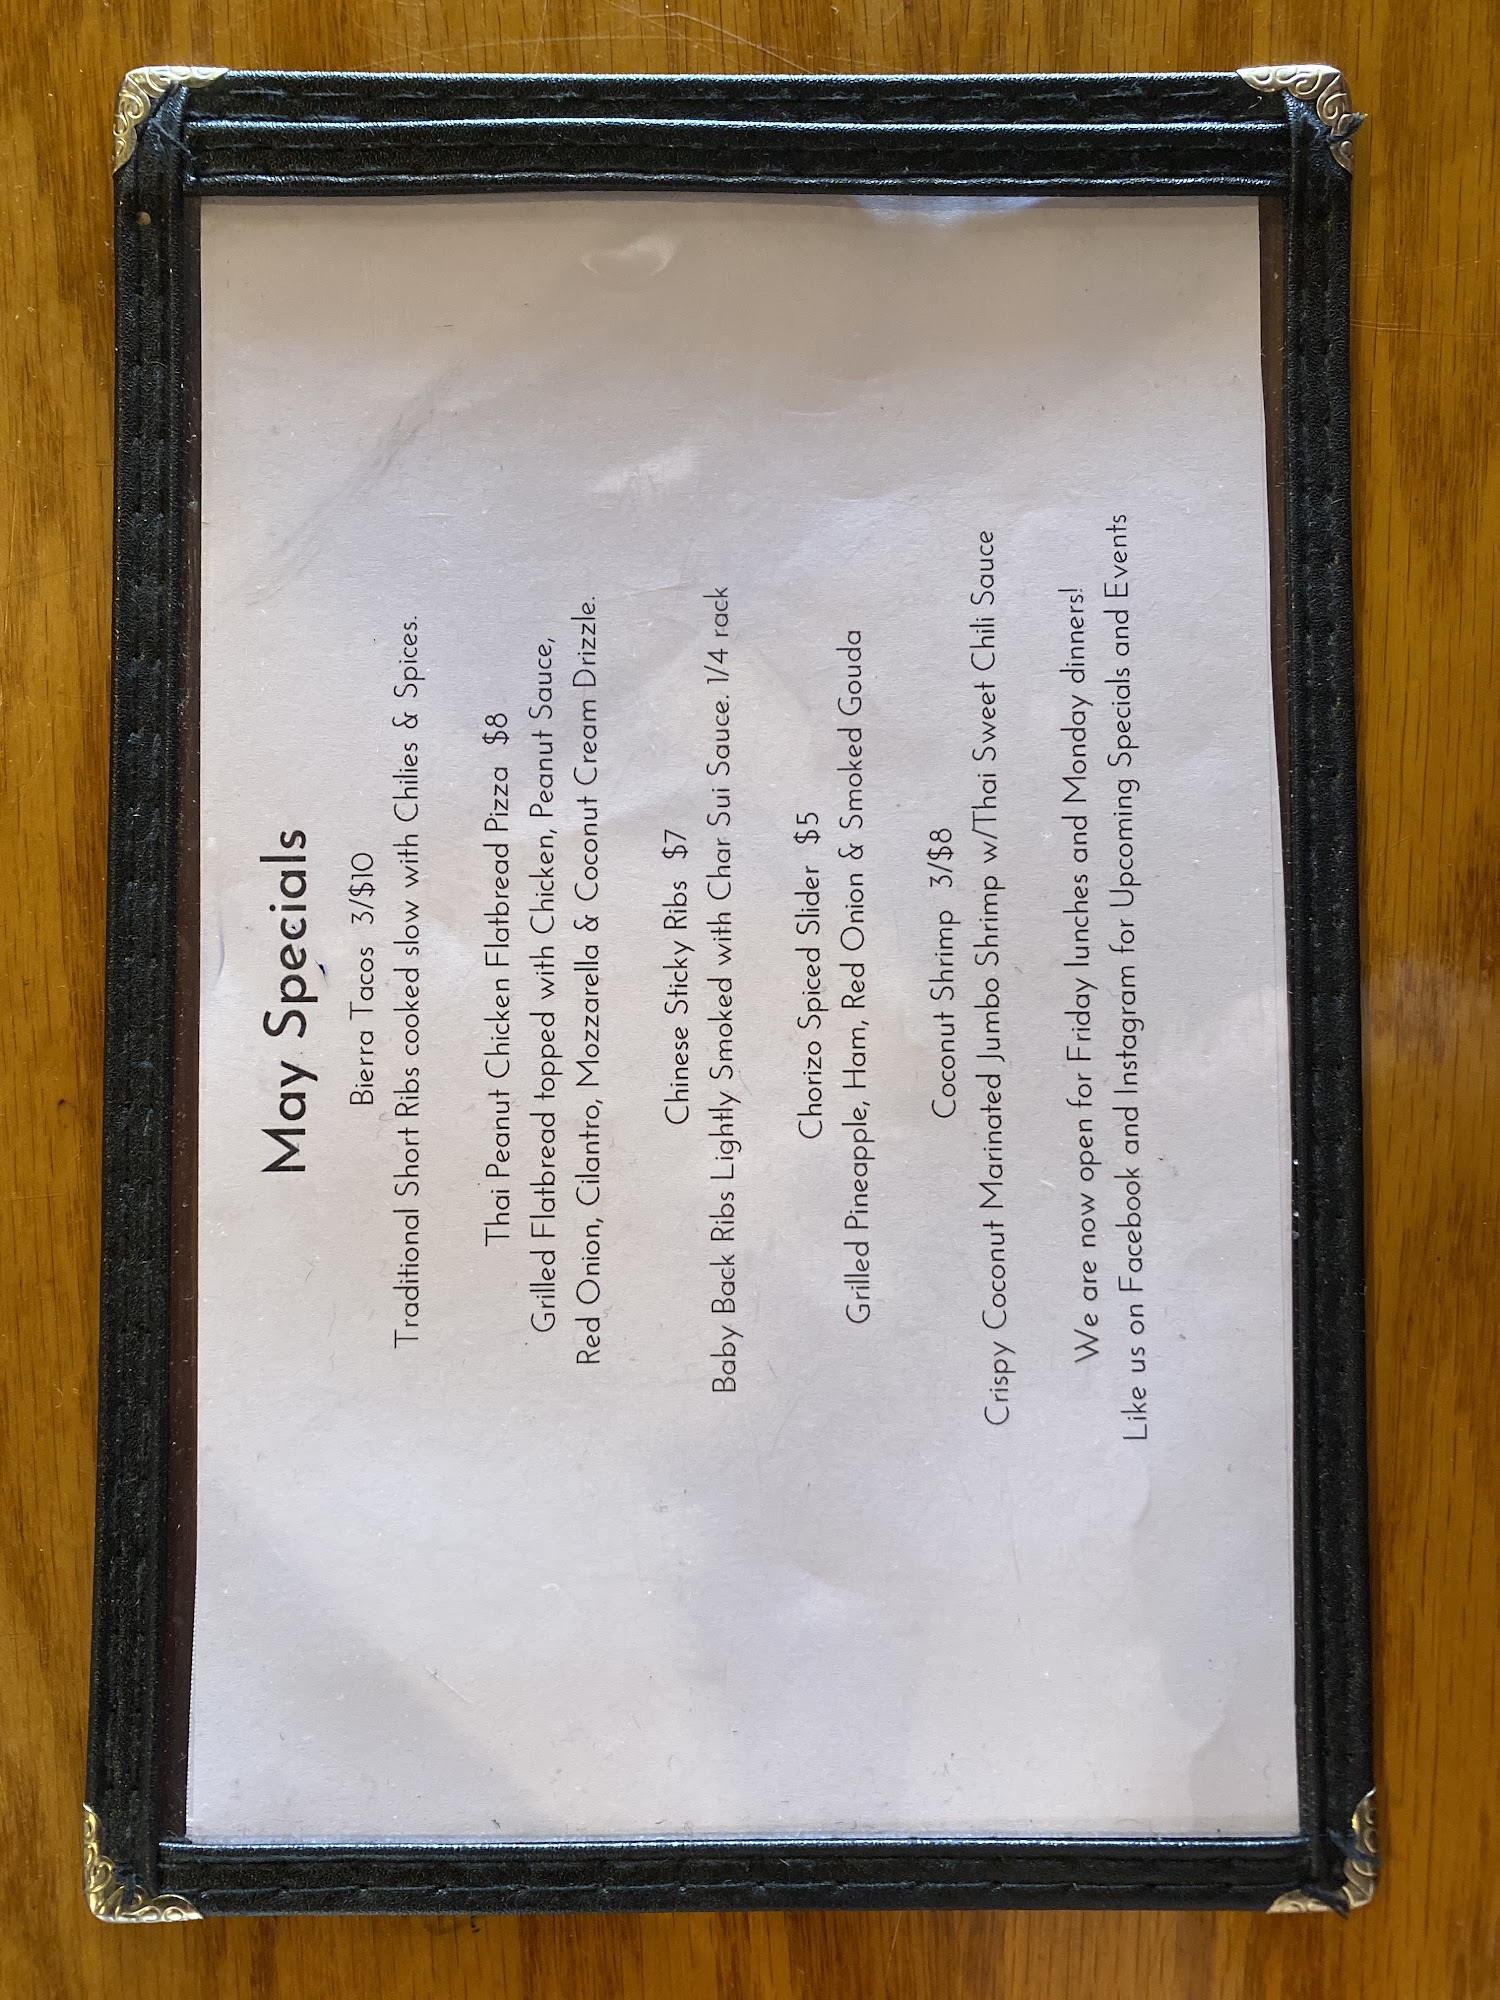 May Specials
Bierra Tacos 3/$10
Traditional Short Ribs cooked slow with Chilies & Spices.
Thai Peanut Chicken Flatbread Pizza $8
Grilled Flatbread topped with Chicken, Peanut Sauce,
Red Onion, Cilantro, Mozzarella & Coconut Cream Drizzle.
Chinese Sticky Ribs $7
Baby Back Ribs Lightly Smoked with Char Sui Sauce. 1/4 rack
Chorizo Spiced Slider $5
Grilled Pineapple, Ham, Red Onion & Smoked Gouda
Coconut Shrimp 3/$8
Crispy Coconut Marinated Jumbo Shrimp w/Thai Sweet Chili Sauce
We are now open for Friday lunches and Monday dinners!
Like us on Facebook and Instagram for Upcoming Specials and Events